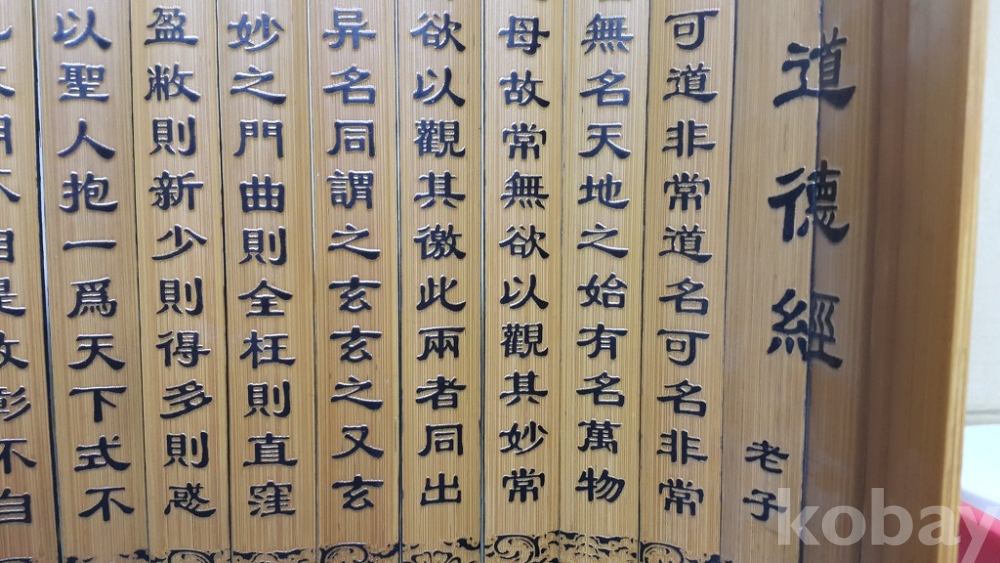 道德經
老子
可道非常道名可名非常
無名天地之始有名萬物
母故常無欲以觀其妙常
欲以觀其徼此兩者同出
异名同謂之玄玄之又玄
妙之門曲則全枉則直窪
盈敝則新少則得多則惑
以聖人抱一爲天下式不
自是故彰不自
kobay